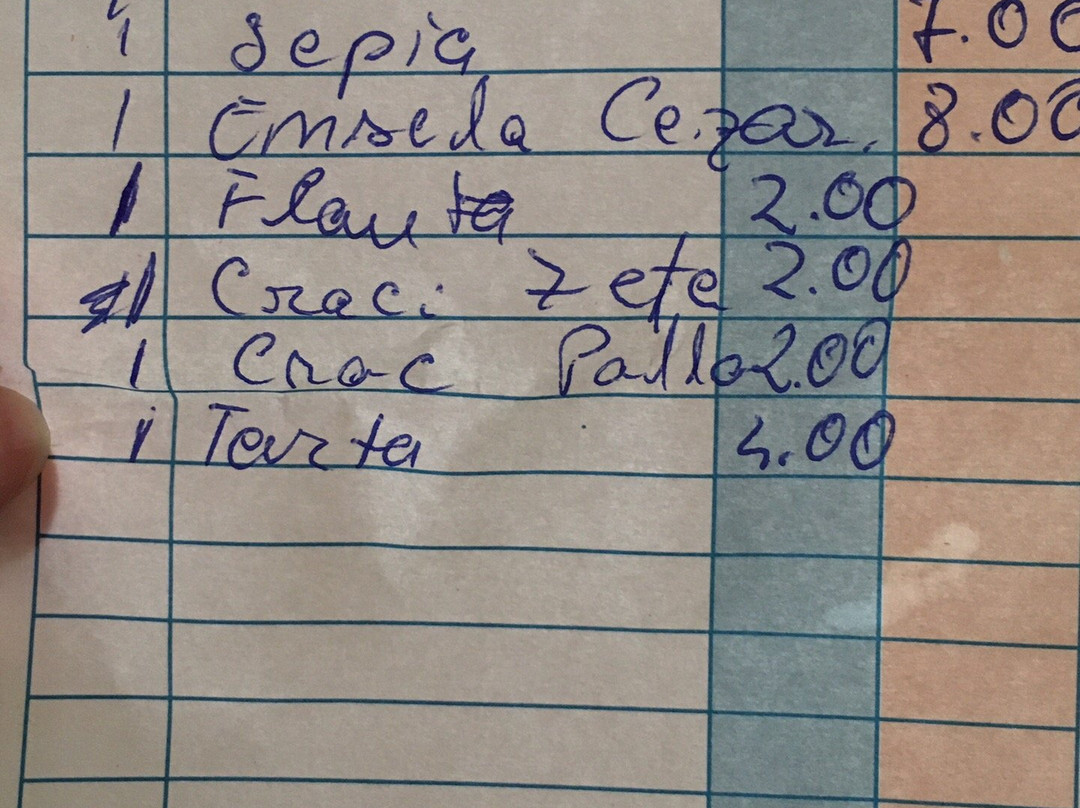 1 Sepia 7.00
1 Ensela Cezar. 8.00
1 Flauta 2.00
1 Craci Zeta 2.00
1 Crac Pollo 2.00
1 Tarta 4.00